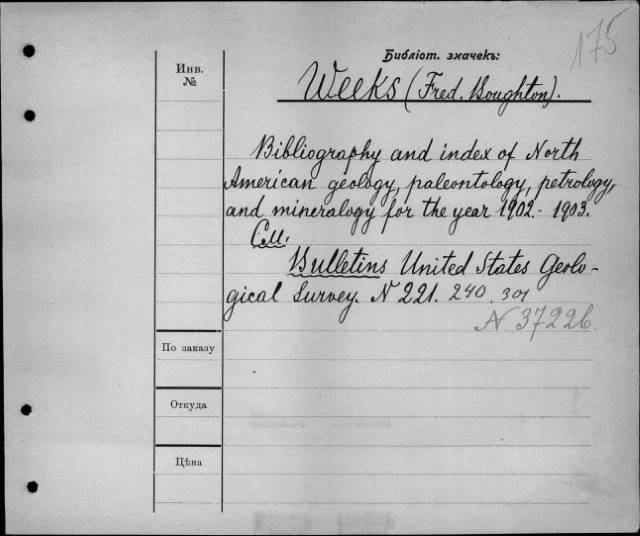 175
Библіот. значекъ:
Инв.
№
Weeks (Fred. Boughton).
Bibliography and index of North
American geology, paleontology, petrology,
and mineralogy for the year 1902.- 1903.
См.
Bulletins United States Geolo-
gical Survey. N 221. 240. 301
N 37226.
По заказу
Откуда
Цѣна